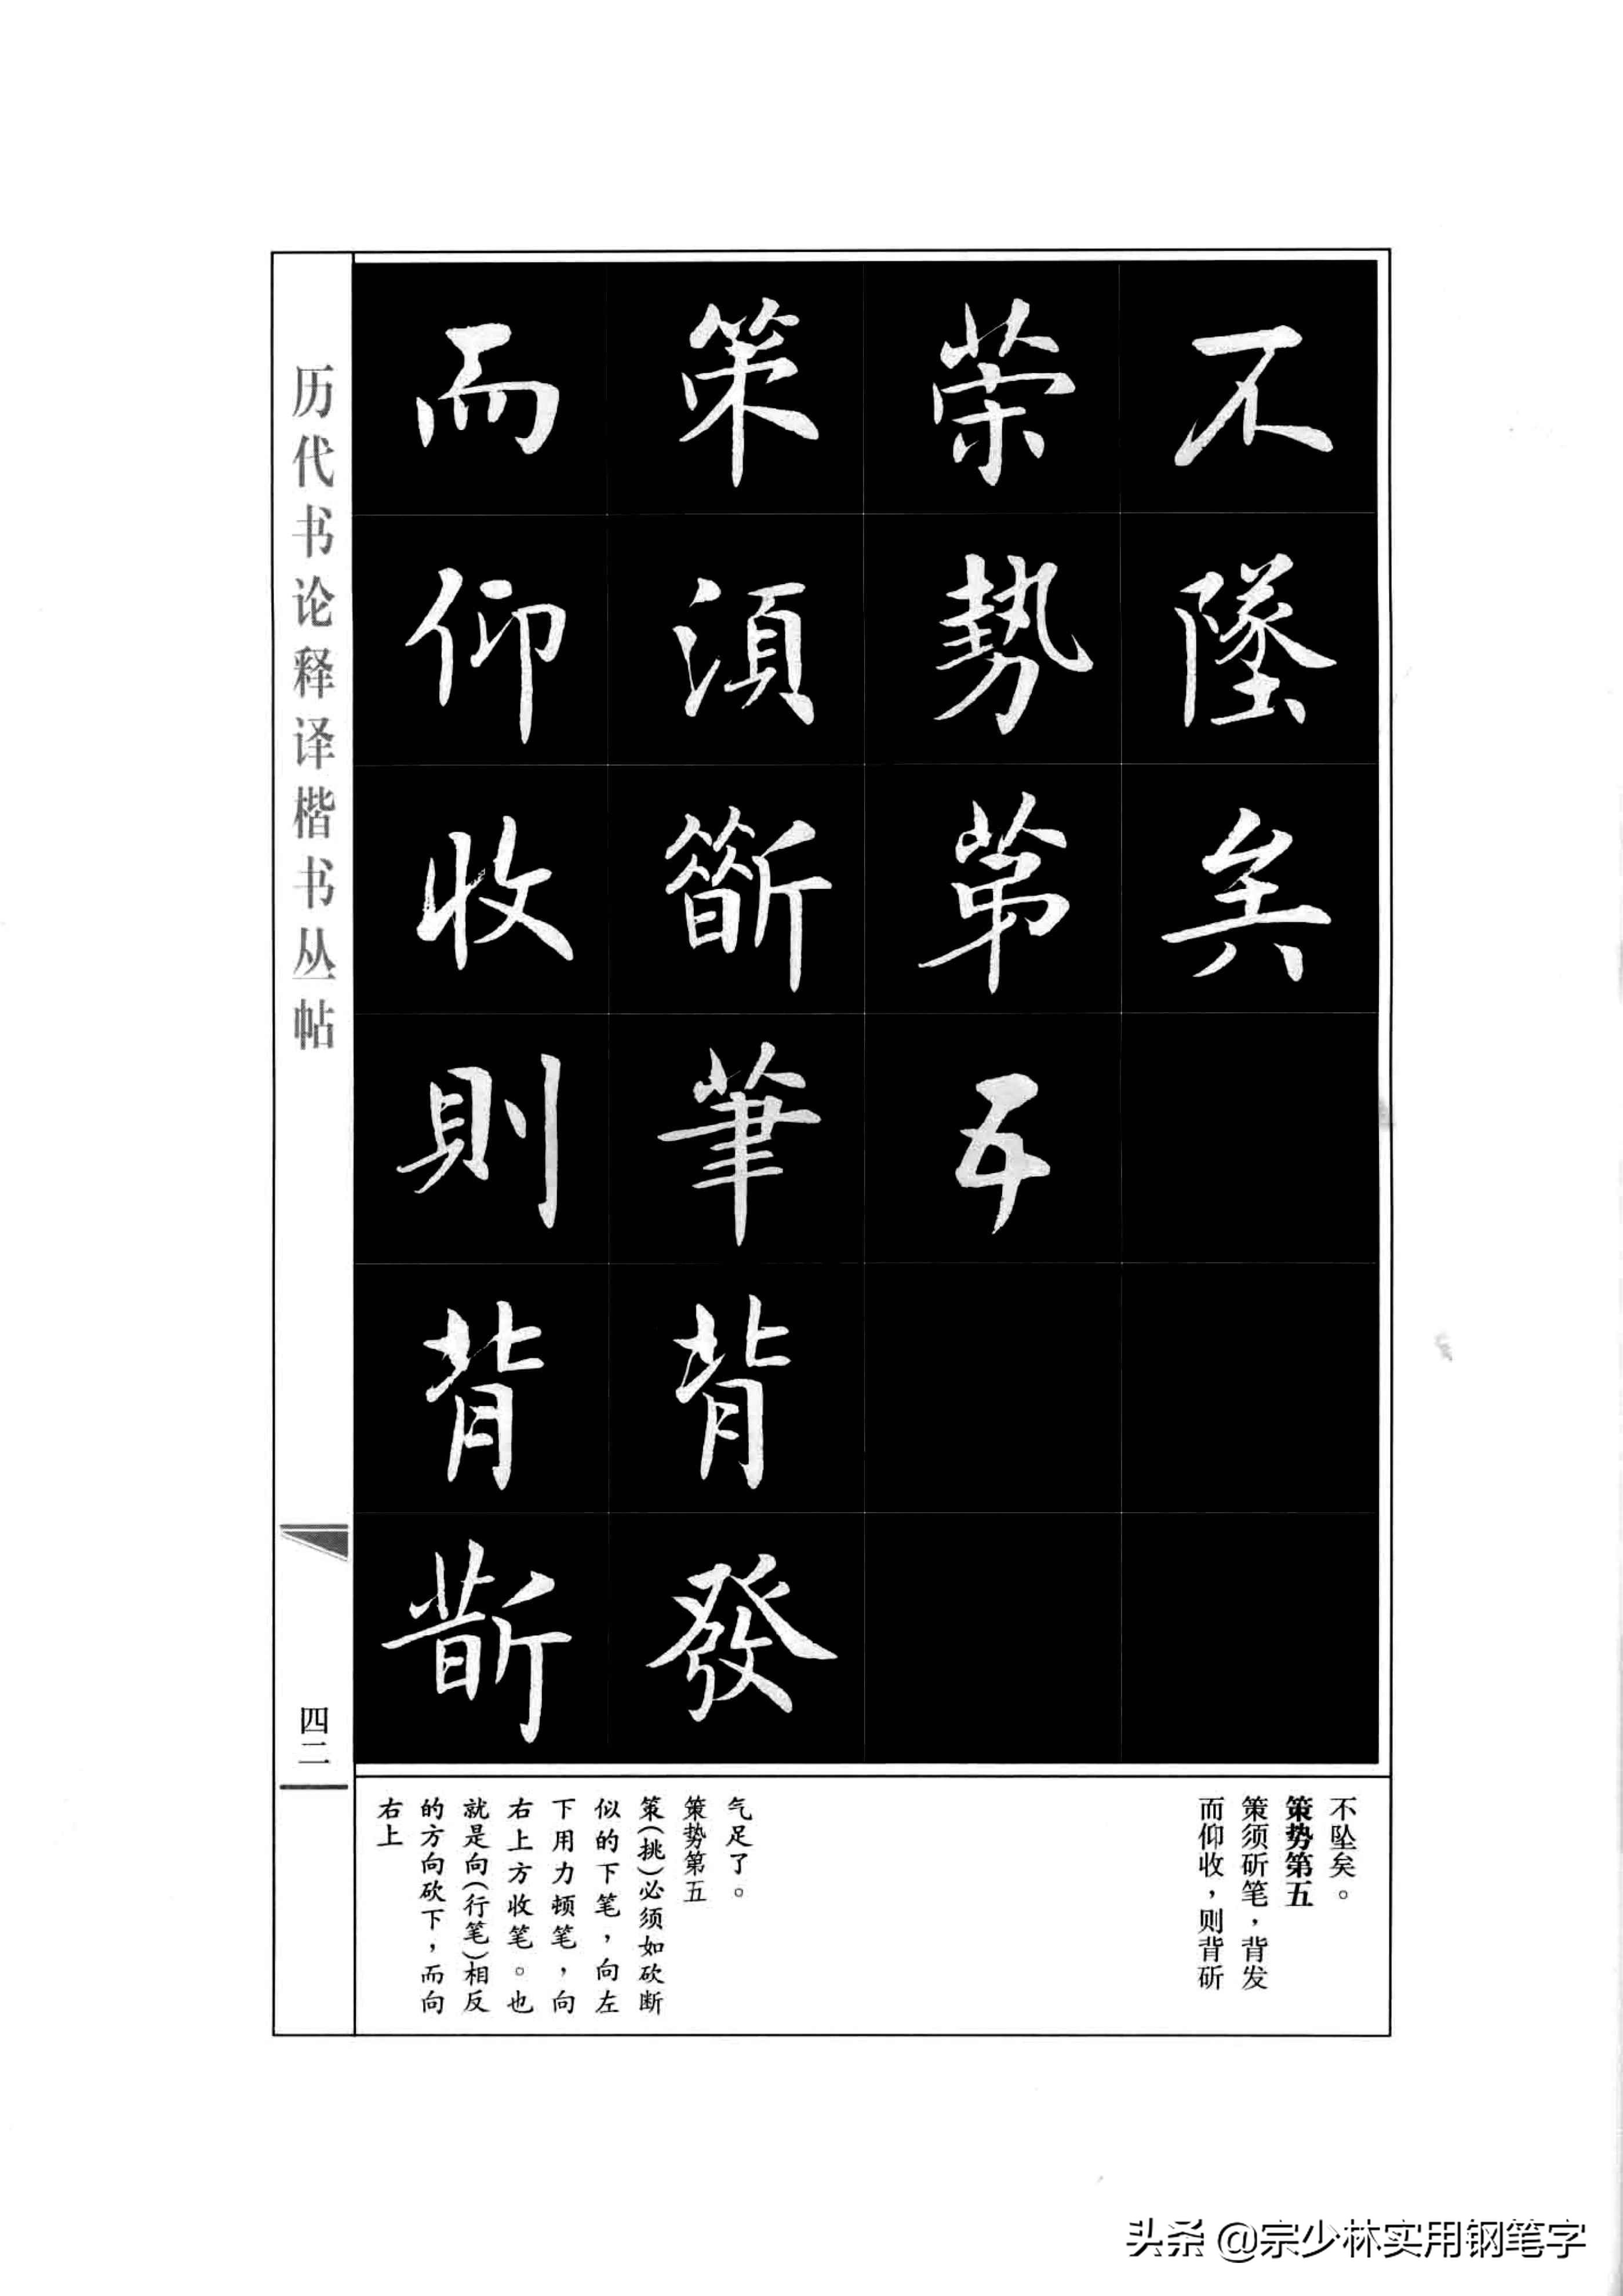 不墜矣
策勢第五
策須斫筆背發
而仰收則背斫
历代书论释译楷书丛帖
四二
不坠矣。
策势第五
策须斫笔，背发
而仰收，则背斫
气足了。
策势第五
策(挑)必须如砍断
似的下笔，向左
下用力顿笔，向
右上方收笔。也
就是向(行笔)相反
的方向砍下，而向
右上
头条 @宗少林实用钢笔字